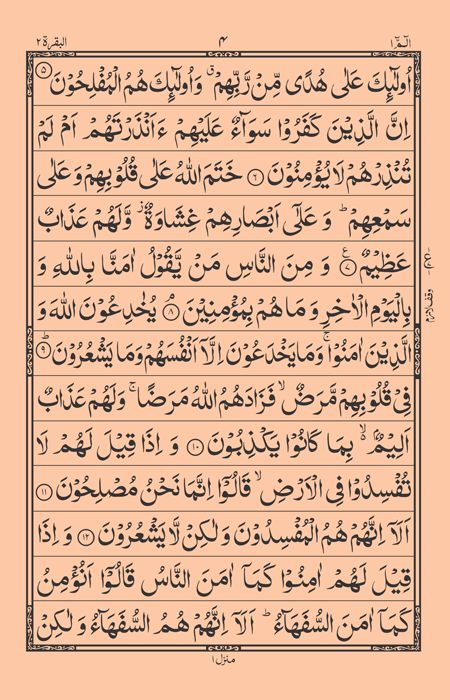 الٓمّٓ ١ ۴ البقرة ٢
اُولٰٓئِكَ عَلٰى هُدًى مِّنْ رَّبِّهِمْ ۗ وَاُولٰٓئِكَ هُمُ الْمُفْلِحُوْنَ ۝۵
اِنَّ الَّذِيْنَ كَفَرُوْا سَوَآءٌ عَلَيْهِمْ ءَاَنْذَرْتَهُمْ اَمْ لَمْ
تُنْذِرْهُمْ لَا يُؤْمِنُوْنَ ۝۶ خَتَمَ اللّٰهُ عَلٰى قُلُوْبِهِمْ وَعَلٰى
سَمْعِهِمْ ؕ وَ عَلٰٓى اَبْصَارِهِمْ غِشَاوَةٌ ؗ وَّلَهُمْ عَذَابٌ
عَظِيْمٌ ۝۷ ع وَ مِنَ النَّاسِ مَنْ يَّقُوْلُ اٰمَنَّا بِاللّٰهِ وَ
بِالْيَوْمِ الْاٰخِرِ وَ مَا هُمْ بِمُؤْمِنِيْنَ ۘ ۝۸ يُخٰدِعُوْنَ اللّٰهَ وَ
الَّذِيْنَ اٰمَنُوْا ۚ وَمَا يَخْدَعُوْنَ اِلَّاۤ اَنْفُسَهُمْ وَمَا يَشْعُرُوْنَ ؕ ۝۹
فِىْ قُلُوْبِهِمْ مَّرَضٌ ۙ فَزَادَهُمُ اللّٰهُ مَرَضًا ۚ وَلَهُمْ عَذَابٌ
اَلِيْمٌۢ ۙ بِمَا كَانُوْا يَكْذِبُوْنَ ۝۱۰ وَ اِذَا قِيْلَ لَهُمْ لَا
تُفْسِدُوْا فِى الْاَرْضِ ۙ قَالُوْٓا اِنَّمَا نَحْنُ مُصْلِحُوْنَ ۝۱۱
اَلَاۤ اِنَّهُمْ هُمُ الْمُفْسِدُوْنَ وَ لٰكِنْ لَّا يَشْعُرُوْنَ ۝۱۲ وَ اِذَا
قِيْلَ لَهُمْ اٰمِنُوْا كَمَآ اٰمَنَ النَّاسُ قَالُوْٓا اَنُؤْمِنُ
كَمَآ اٰمَنَ السُّفَهَآءُ ؕ اَلَاۤ اِنَّهُمْ هُمُ السُّفَهَآءُ وَ لٰكِنْ
منزل ١
وقف لازم